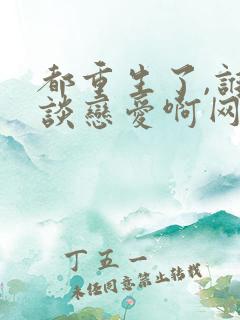 都重生了,誰
談戀愛啊网
丁五一
未经同意禁止转载